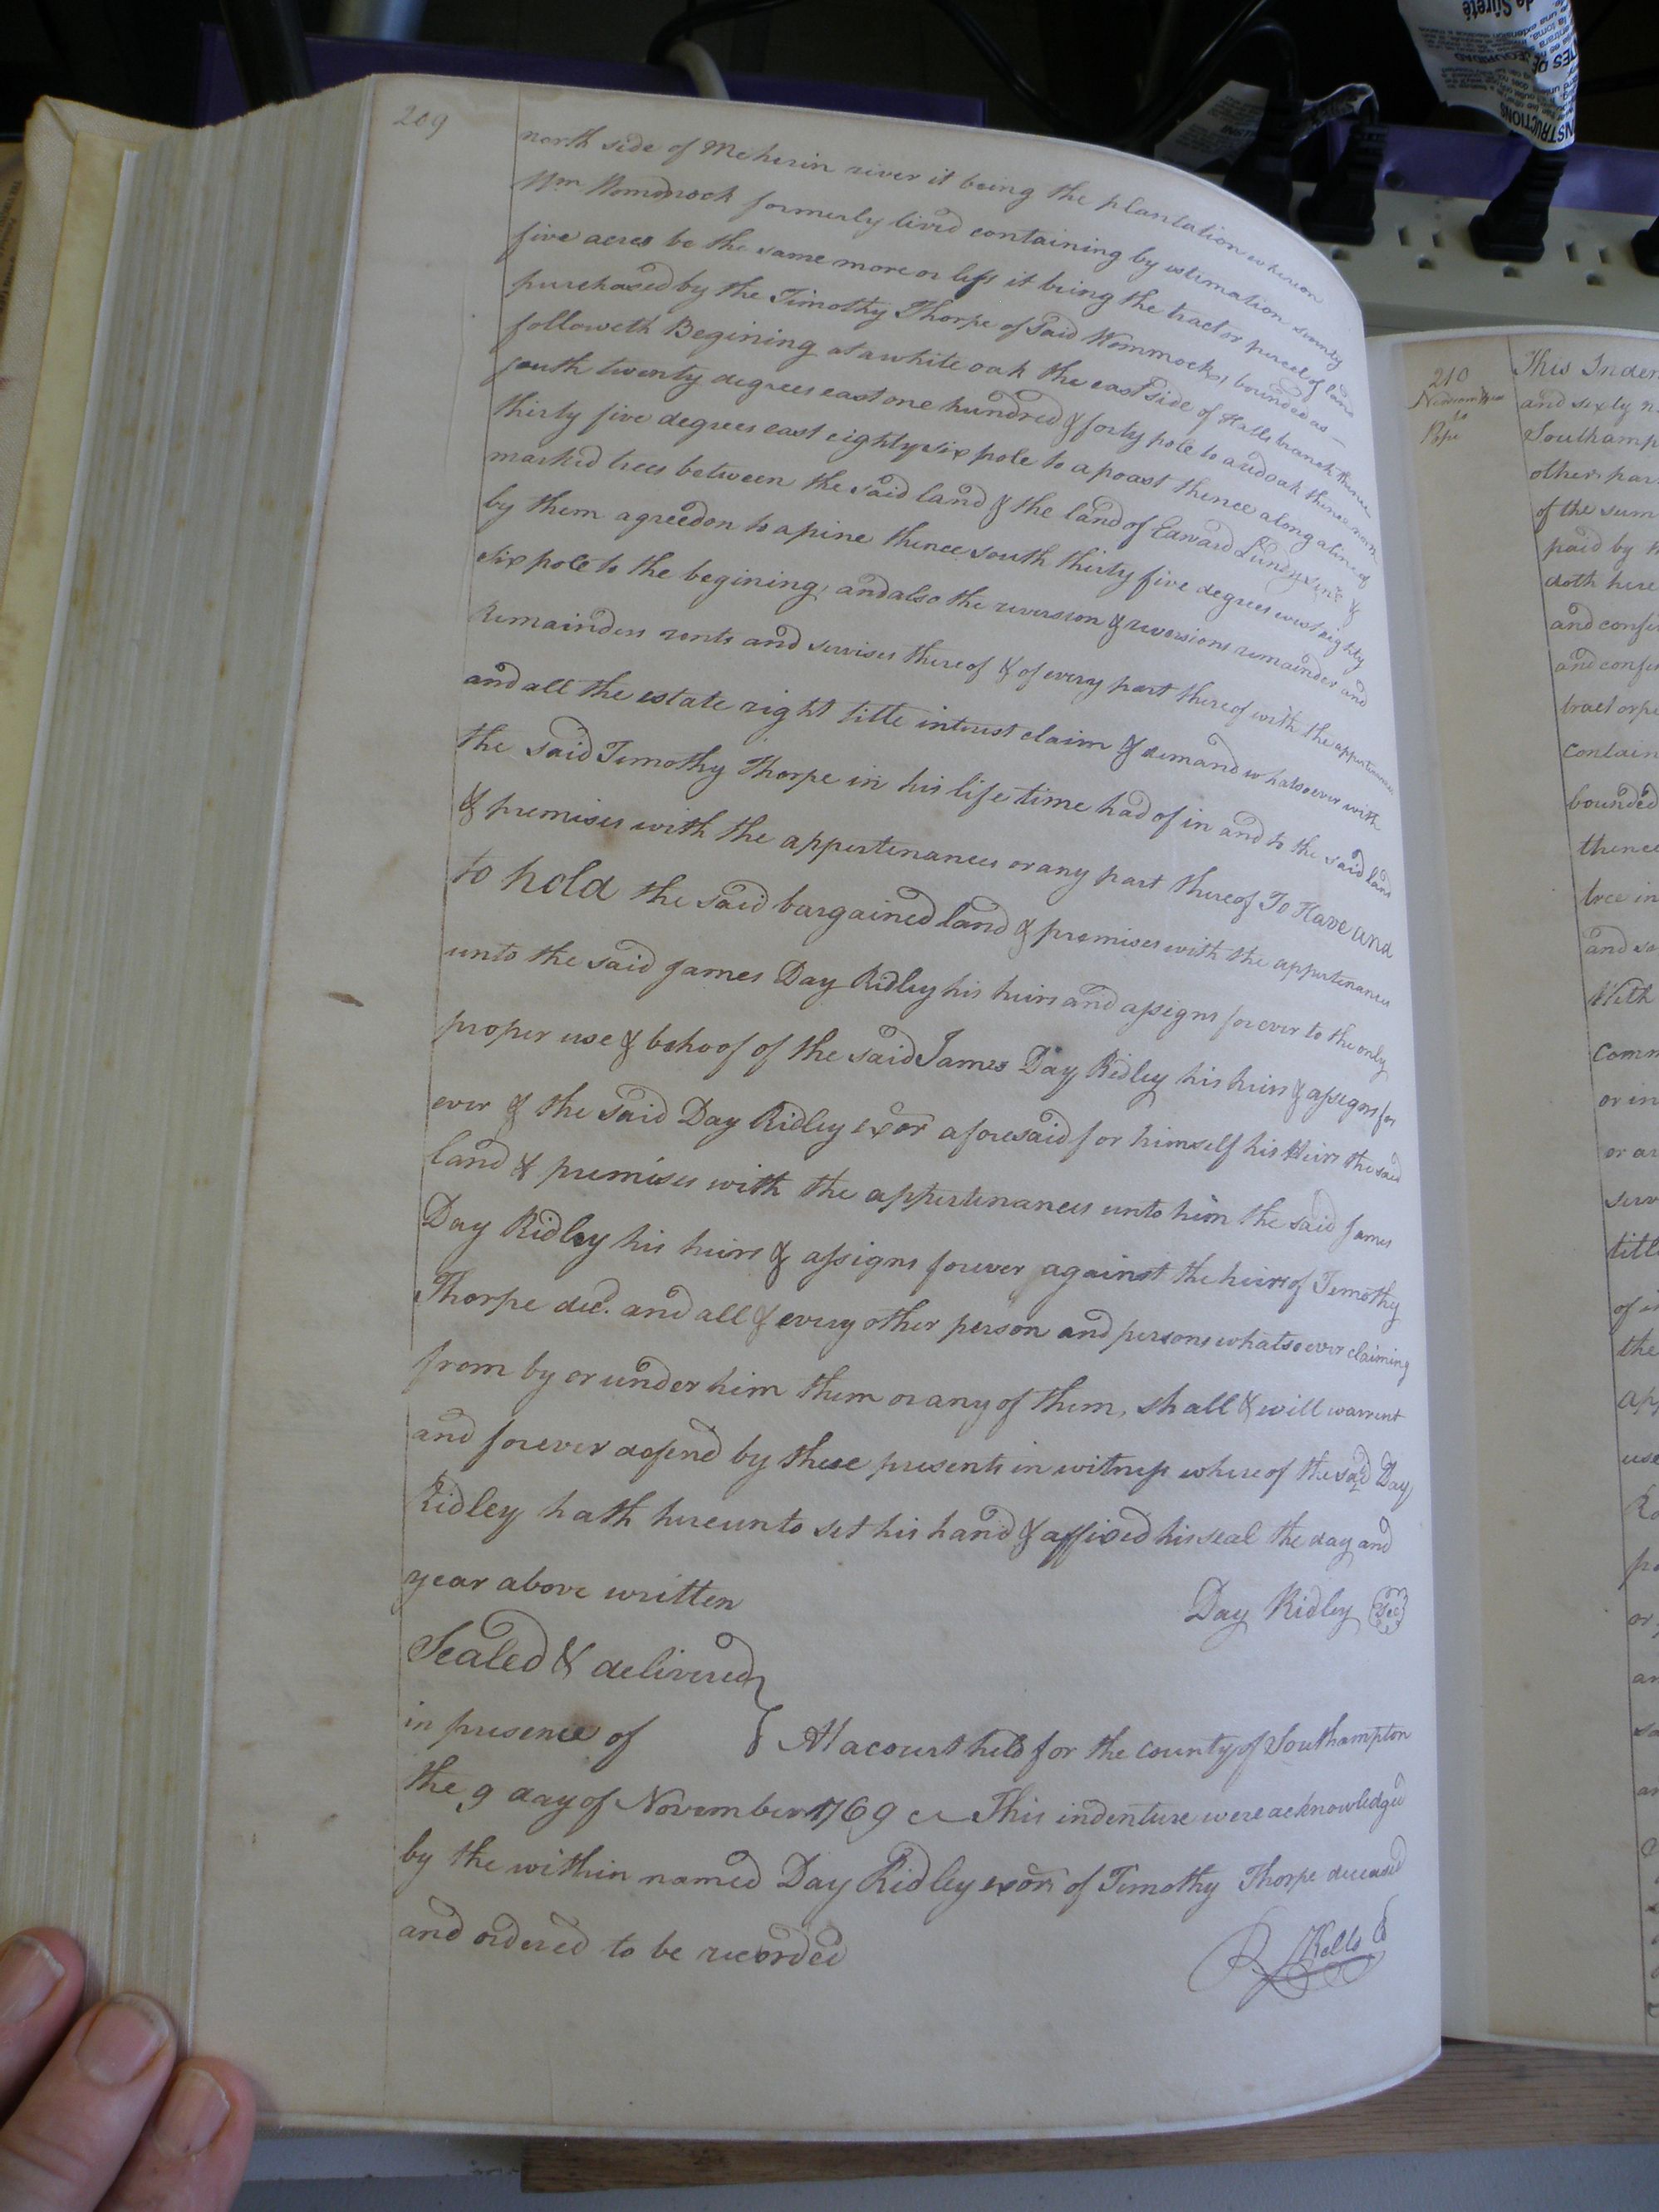 209
north side of Meherin river it being the plantation whereon
Wm Wommock formerly lived containing by estimation seventy
five acres be the same more or less it being the tract or parcel of land
purchased by the Timothy Thorpe of said Wommock, bounded as
followeth Begining at a white oak the east side of Halls branch thence
south twenty degrees east one hundred & forty pole to a red oak thence north
thirty five degrees east eighty six pole to a poast thence along a line of
marked trees between the said land & the land of Edward Lundy &
by them agreed on to a pine thence south thirty five degrees west eighty
six pole to the begining, and also the reversion & reversions remainder and
Remainders rents and servises thereof & of every part thereof with the appurtenances
and all the estate right title interest claim & demand whatsoever with
the said Timothy Thorpe in his life time had of in and to the said land
& premises with the appertenances or any part thereof To Have and
to hold the said bargained land & premises with the appertenances
unto the said James Day Ridley his heirs and assigns forever to the only
proper use & behoof of the said James Day Ridley his heirs & assigns for
ever & the said Day Ridley exor aforesaid for himself his Heirs the said
land & premises with the appertenances unto him the said James
Day Ridley his heirs & assigns forever against the heirs of Timothy
Thorpe decd. and all & every other person and persons whatsoever claiming
from by or under him them or any of them, shall & will warrent
and forever defend by these presents in witness whereof the said Day
Ridley hath hereunto set his hand & affixed his seal the day and
year above written
Day Ridley
Sealed & delivered
in presence of
At a court held for the county of Southampton
the 9 day of November 1769 This indenture were acknowledged
by the within named Day Ridley exor of Timothy Thorpe deceased
and ordered to be recorded
R Kello
210
to
Pope
This Inden
and sixty n
Southamp
other par
of the sum
paid by th
doth here
and confi
and confi
tract or pa
contain
bounded
thence
tree in
and
With
comm
or in
or
serv
titl
of
the
app
use